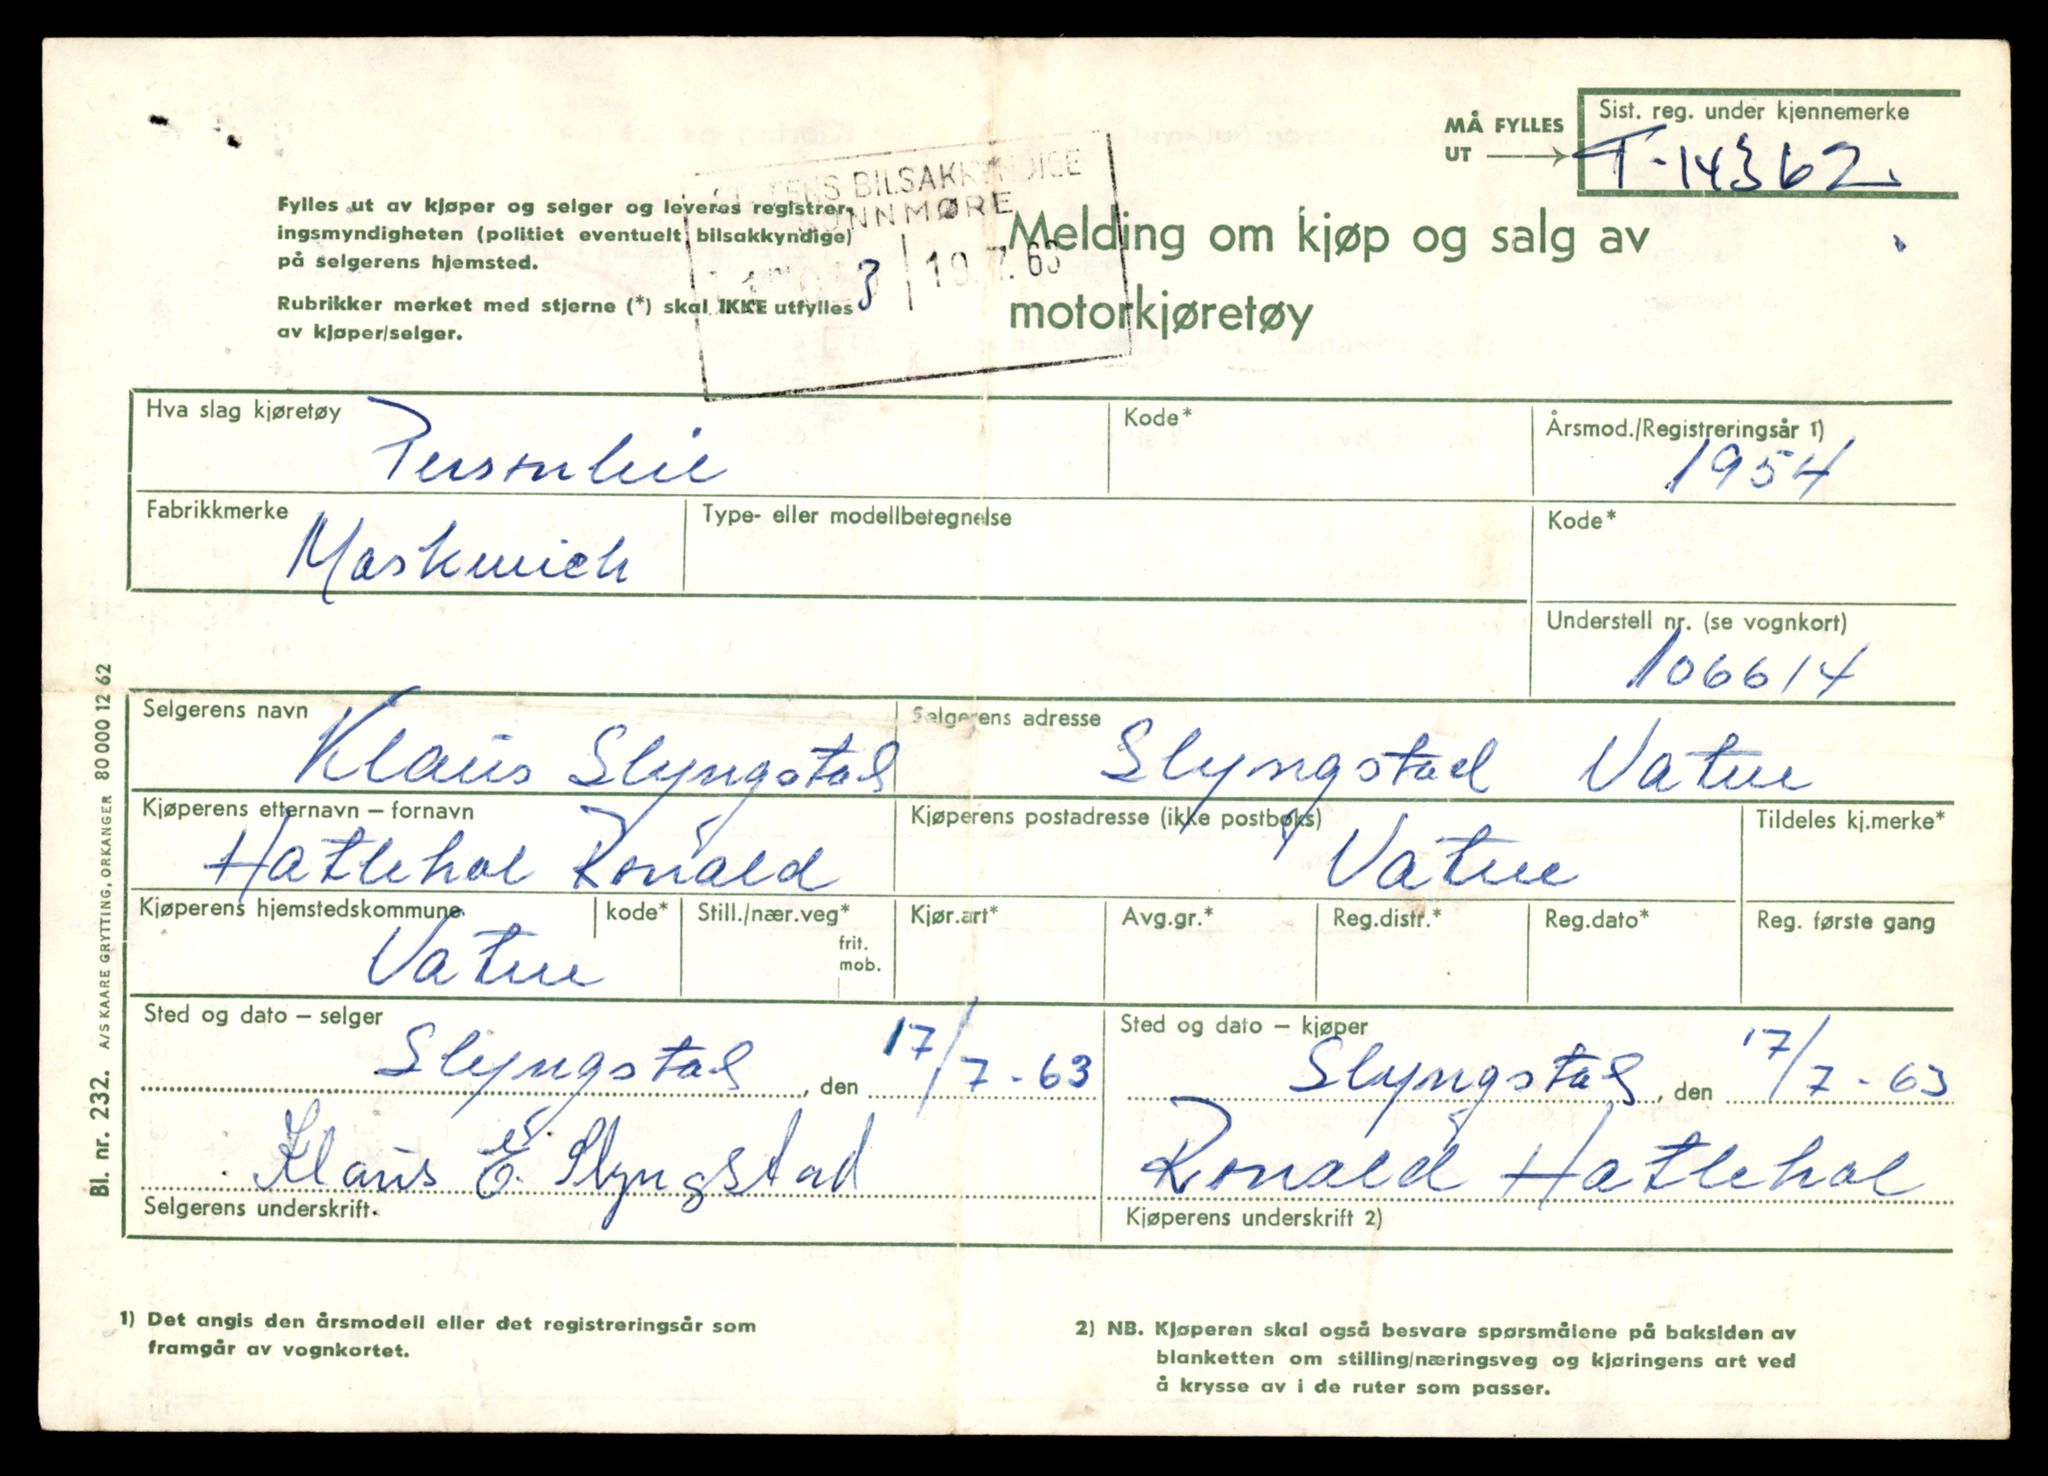 MÅ FYLLES
UT
Sist. reg. under kjennemerke
T-14362
STATENS BILSAKKYNDIGE
SUNNMØRE
3 19.7.63
Fylles ut av kjøper og selger og leveres registrer-
ingsmyndigheten (politiet eventuelt bilsakkyndige)
på selgerens hjemsted.
Rubrikker merket med stjerne (*) skal IKKE utfylles
av kjøper/selger.
Melding om kjøp og salg av
motorkjøretøy
Hva slag kjøretøy
Personbil
Kode*
Årsmod./Registreringsår 1)
1954
Fabrikkmerke
Moskwich
Type- eller modellbetegnelse
Kode*
Understell nr. (se vognkort)
106614
Selgerens navn
Klaus Slyngstad
Selgerens adresse
Slyngstad Vatne
Kjøperens etternavn – fornavn
Hatlehol Ronald
Kjøperens postadresse (ikke postboks)
Vatne
Tildeles kj.merke*
Kjøperens hjemstedskommune
Vatne
kode*
Still./nær.veg*
frit.
mob.
Kjør.art*
Avg.gr.*
Reg.distr.*
Reg.dato*
Reg. første gang
Sted og dato – selger
Slyngstad, den 17/7-63
Sted og dato – kjøper
Slyngstad, den 17/7-63
Klaus E. Slyngstad
Selgerens underskrift
Ronald Hatlehol
Kjøperens underskrift 2)
1) Det angis den årsmodell eller det registreringsår som
framgår av vognkortet.
2) NB. Kjøperen skal også besvare spørsmålene på baksiden av
blanketten om stilling/næringsveg og kjøringens art ved
å krysse av i de ruter som passer.
Bl. nr. 232. A/S KAARE GRYTTING, ORKANGER 80 000 12 62